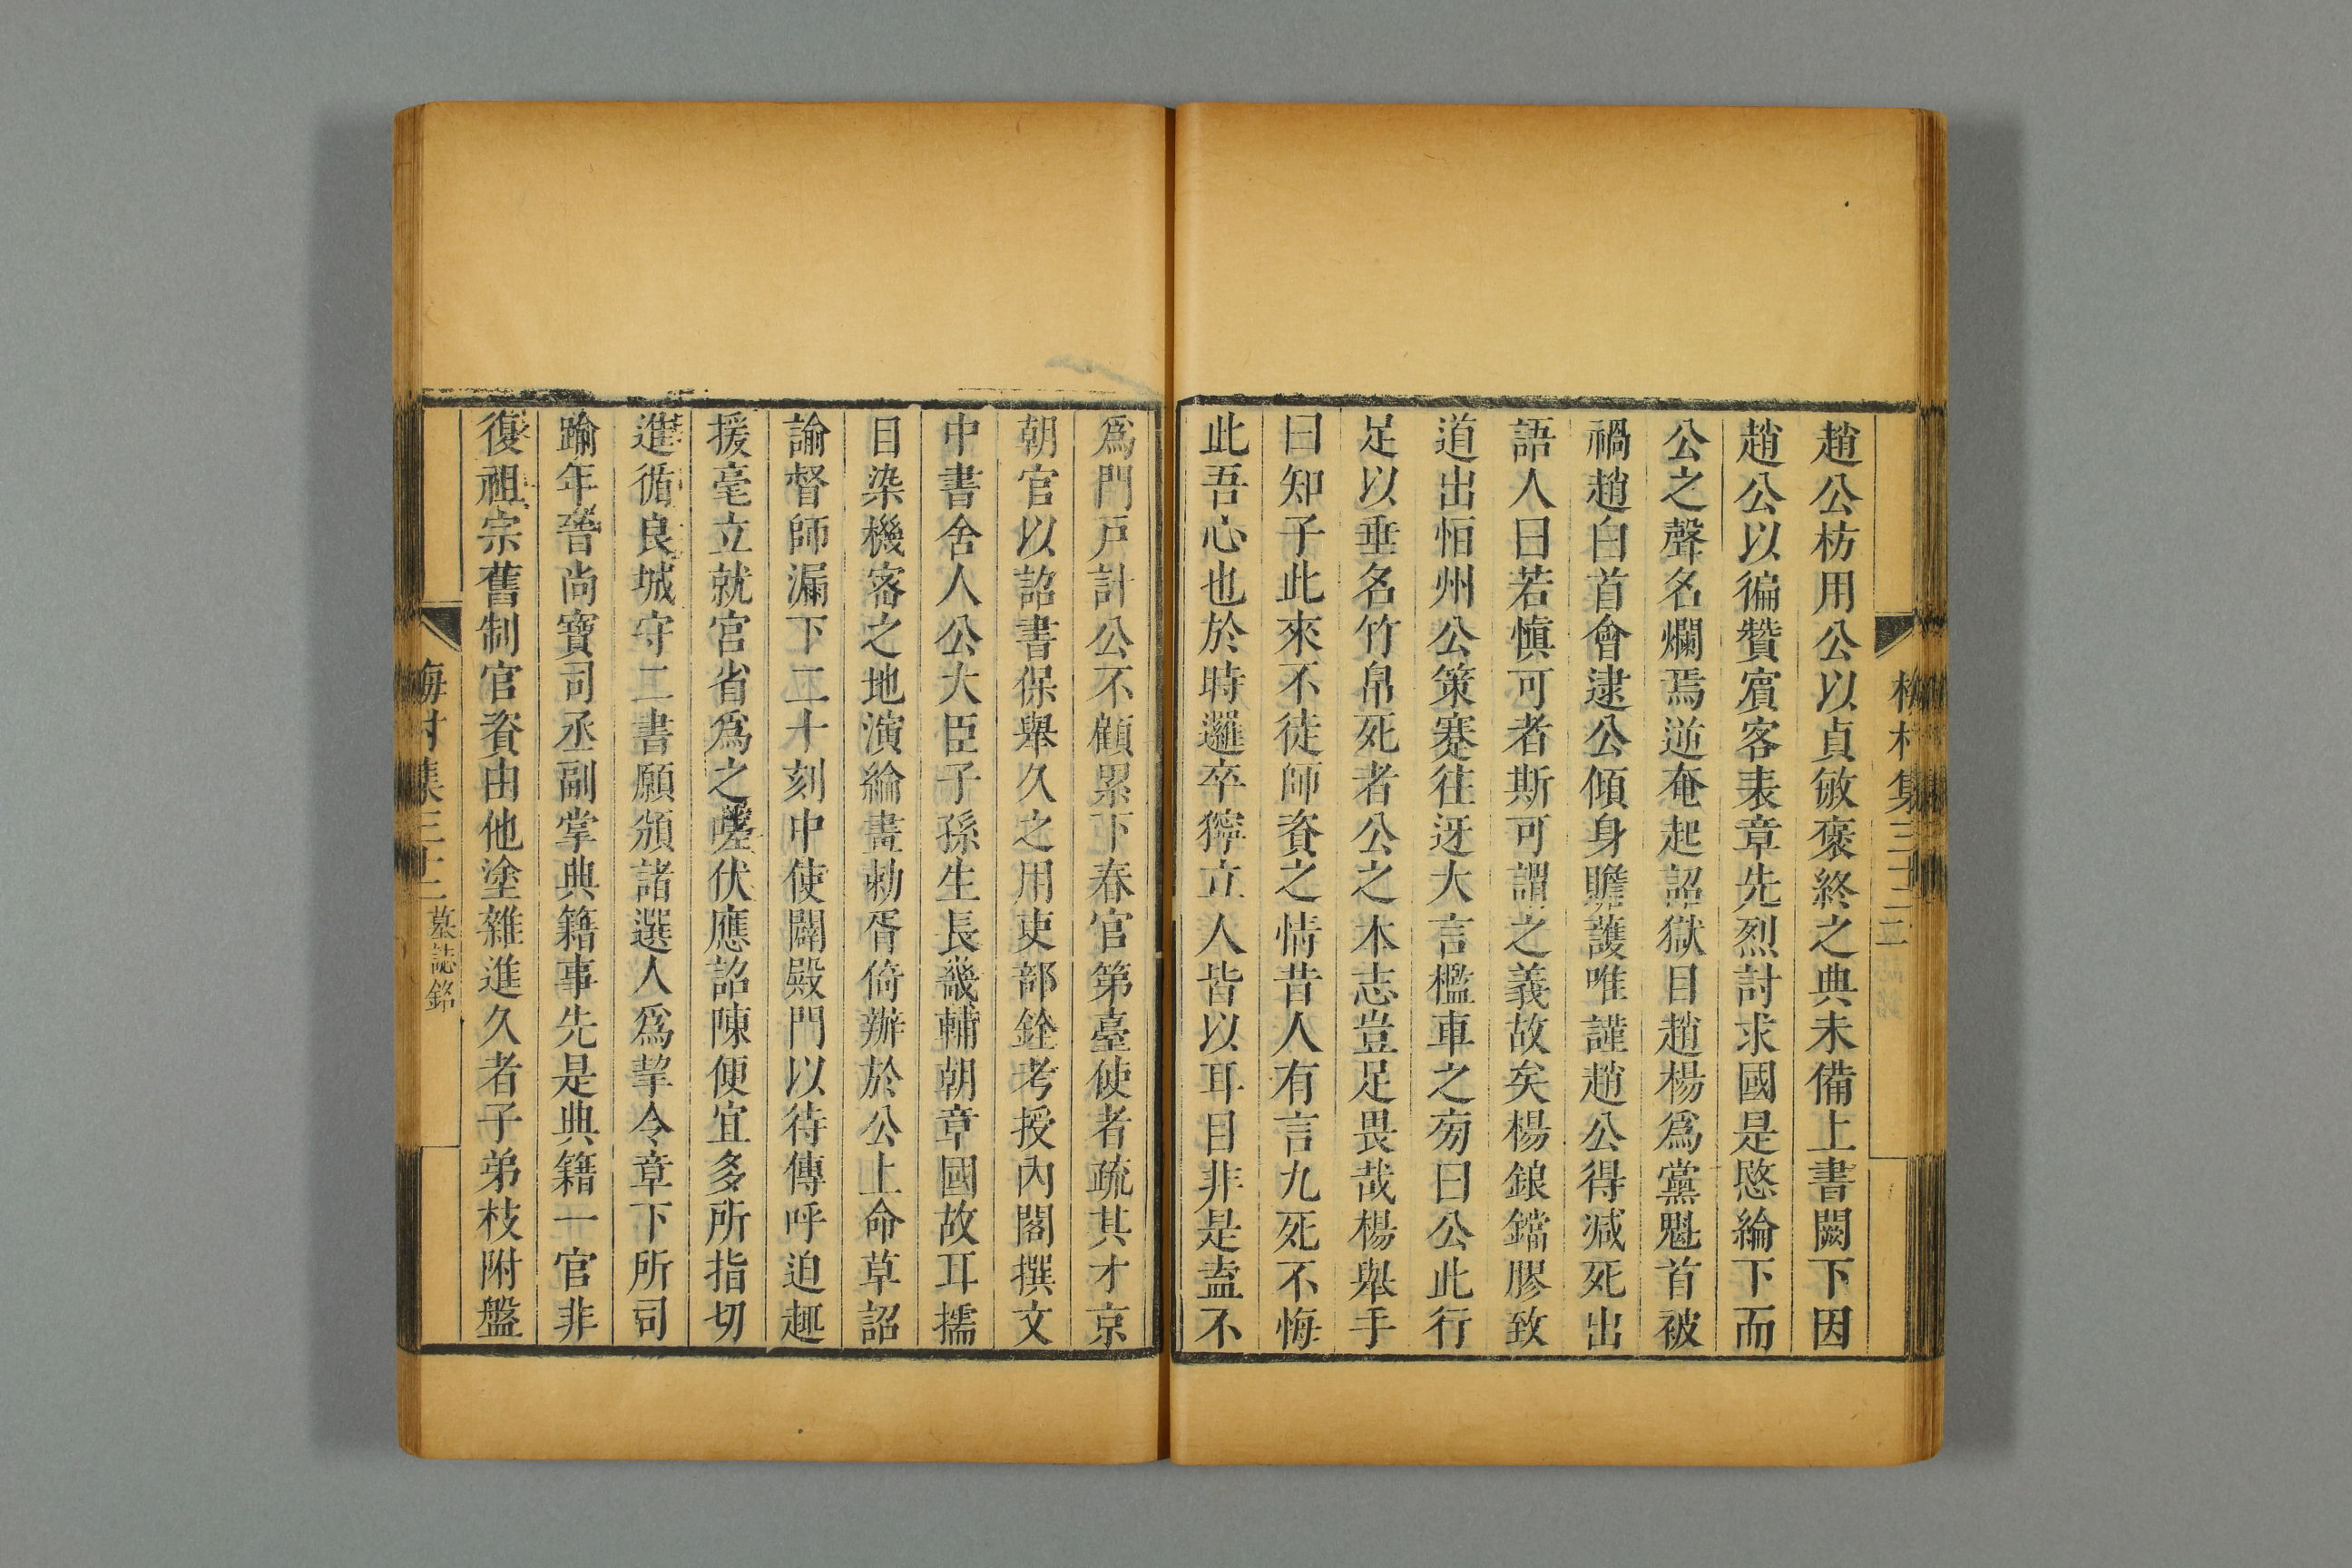 梅村集三十二 二
趙公枋用公以貞敏褒終之典未備上書闕下因
趙公以徧贊賔客表章先烈討求國是愍綸下而
公之聲名爛焉逆奄起詔獄目趙楊爲黨魁首被
禍趙白首會逮公傾身贍護唯謹趙公得減死出
語人曰若愼可者斯可謂之義故矣楊鋃鐺膠致
道出恒州公策蹇往迓大言檻車之旁曰公此行
足以垂名竹帛死者公之本志豈足畏哉楊舉手
曰知子此來不徒師資之情昔人有言九死不悔
此吾心也於時邏卒獰立人皆以耳目非是盍不
爲門戸計公不顧累下春官第臺使者疏其才京
朝官以詔書保舉久之用吏部銓考授內閣撰文
中書舍人公大臣子孫生長畿輔朝章國故耳擩
目染機宻之地演綸畫勅胥倚辦於公上命草詔
諭督師漏下二十刻中使闢殿門以待傳呼迫趣
援毫立就官省爲之嗟伏應詔陳便宜多所指切
進循良城守二書願頒諸選人爲挈令章下所司
踰年晉尚寶司丞副掌典籍事先是典籍一官非
復祖宗舊制官資由他塗雜進久者子弟枝附盤
梅村集三十二 墓誌銘